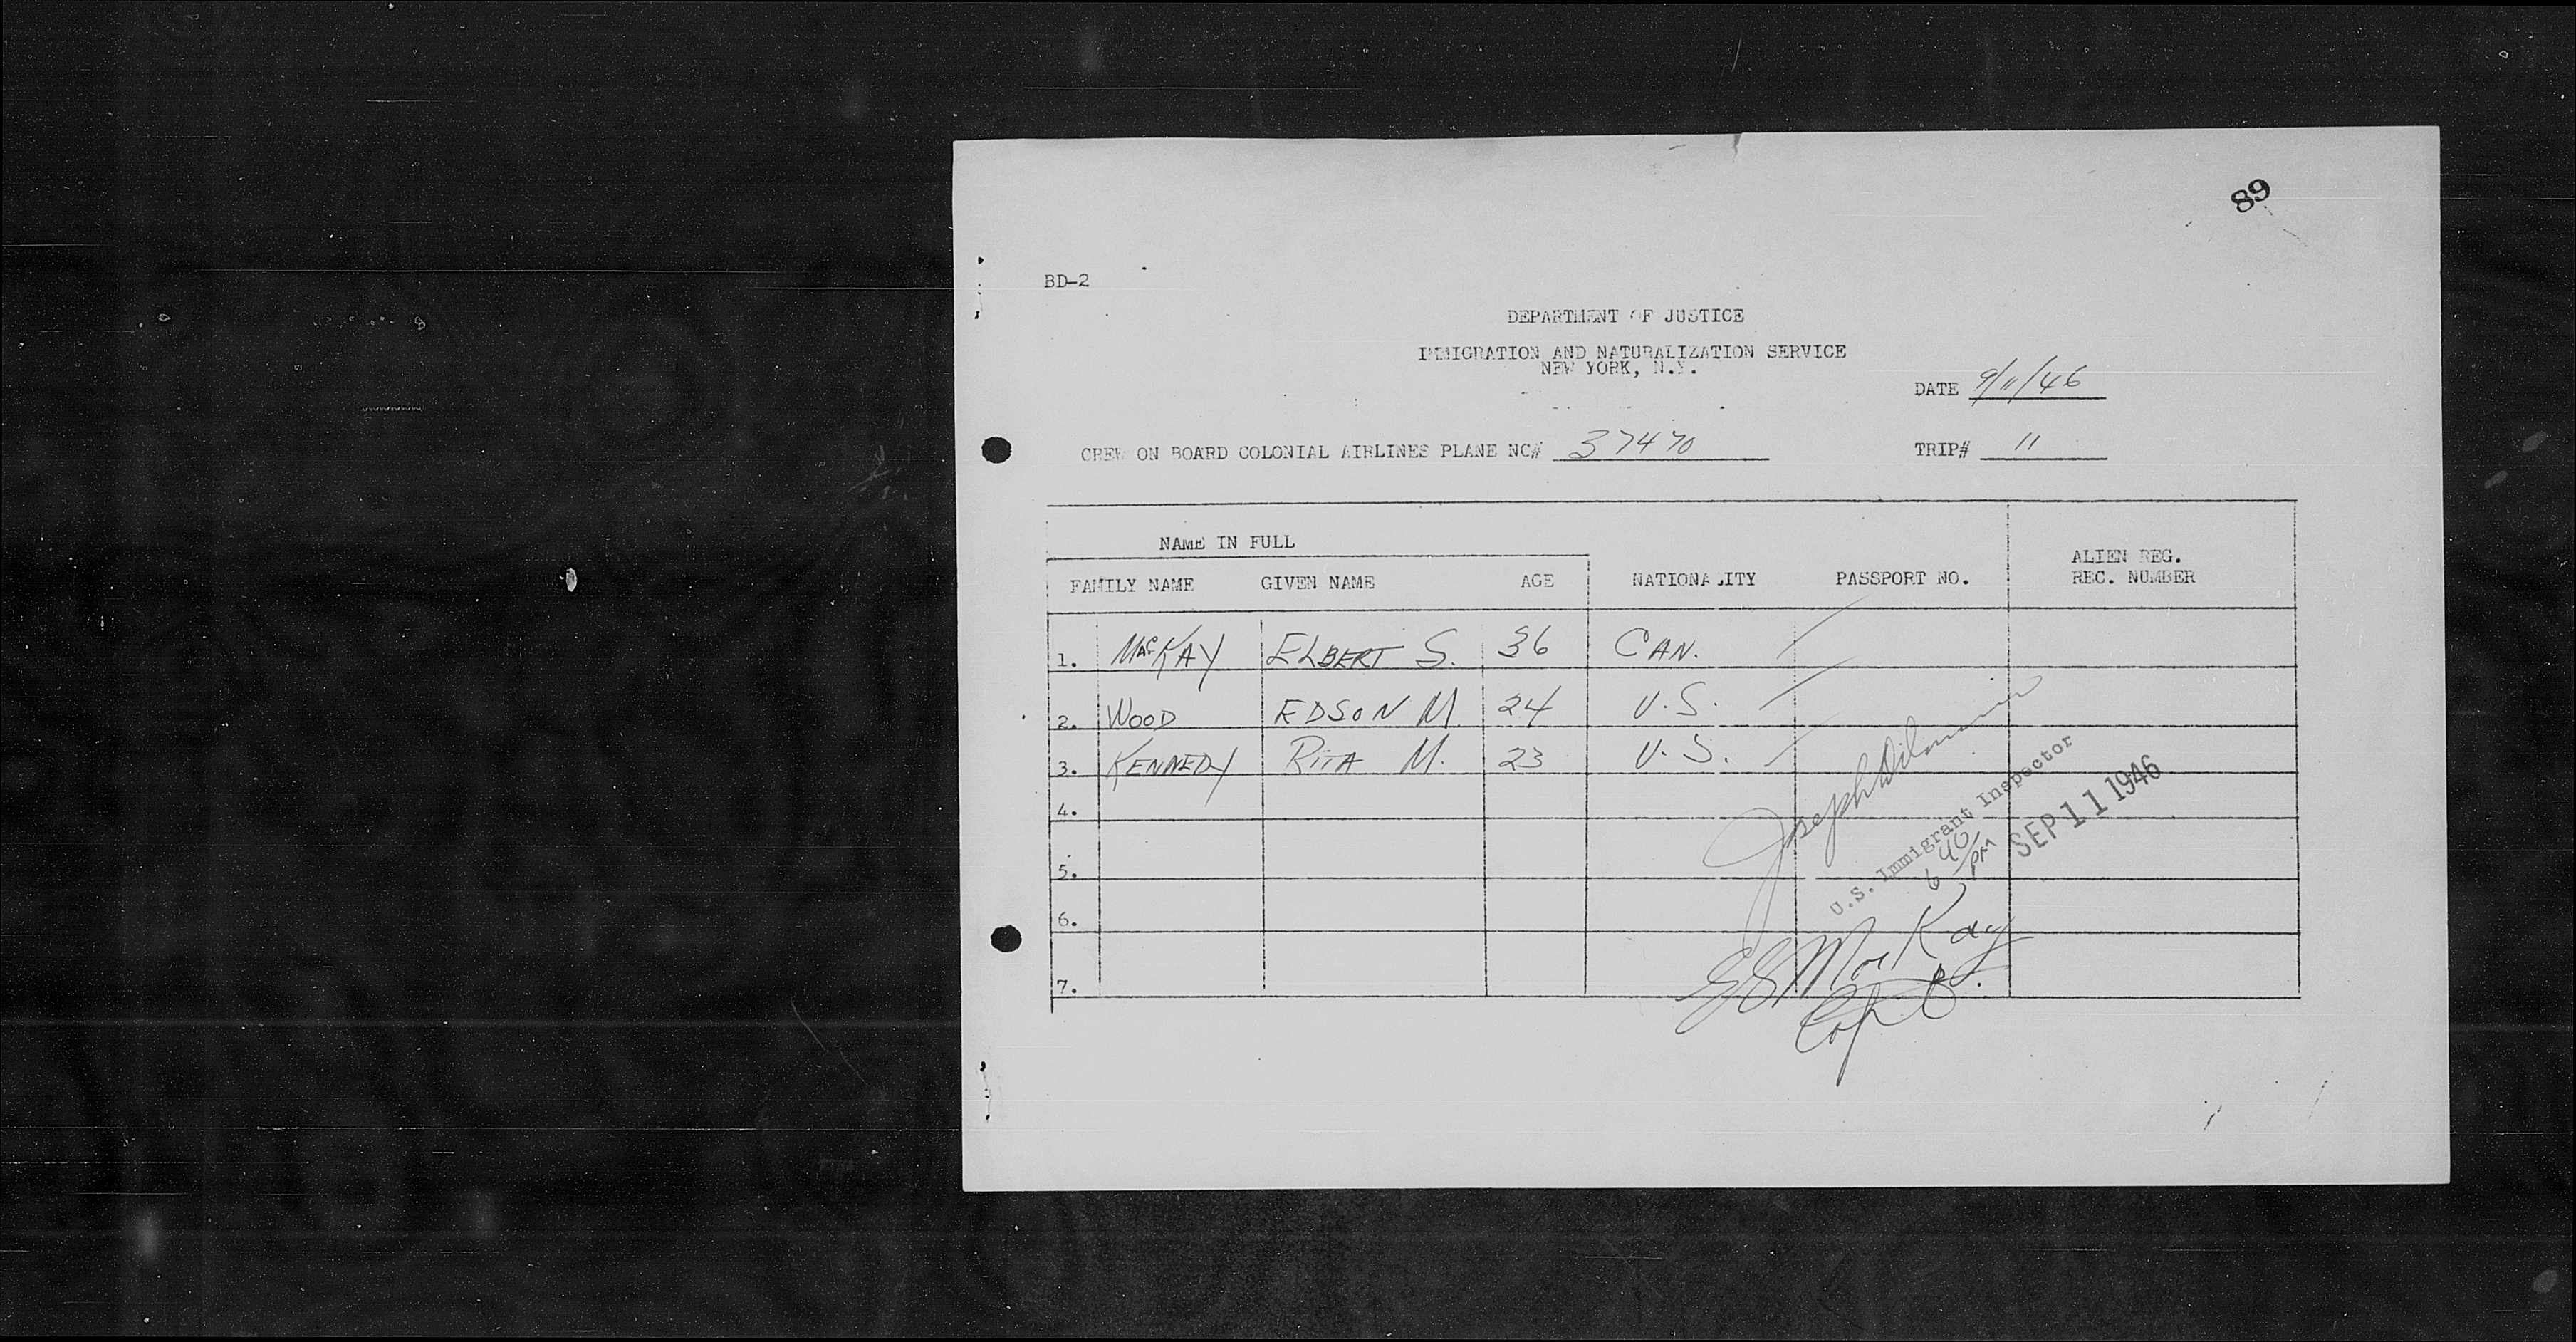 89
BD-2
DEPARTMENT OF JUSTICE
IMMIGRATION AND NATURALIZATION SERVICE
NEW YORK, N.Y.
DATE 9/11/46
CREW ON BOARD COLONIAL AIRLINES PLANE NC# 37470 TRIP# 11
NAME IN FULL
FAMILY NAME GIVEN NAME AGE NATIONALITY PASSPORT NO. ALIEN REG. REC. NUMBER
1. MacKAY ELBERT S. 36 CAN.
2. WOOD EDSON M. 24 U.S.
3. KENNEDY RITA M. 23 U.S.
4.
5.
6.
7.
Joseph
U.S. Immigrant Inspector
6 40 PM
SEP 11 1946
ES MacKay
Capt.